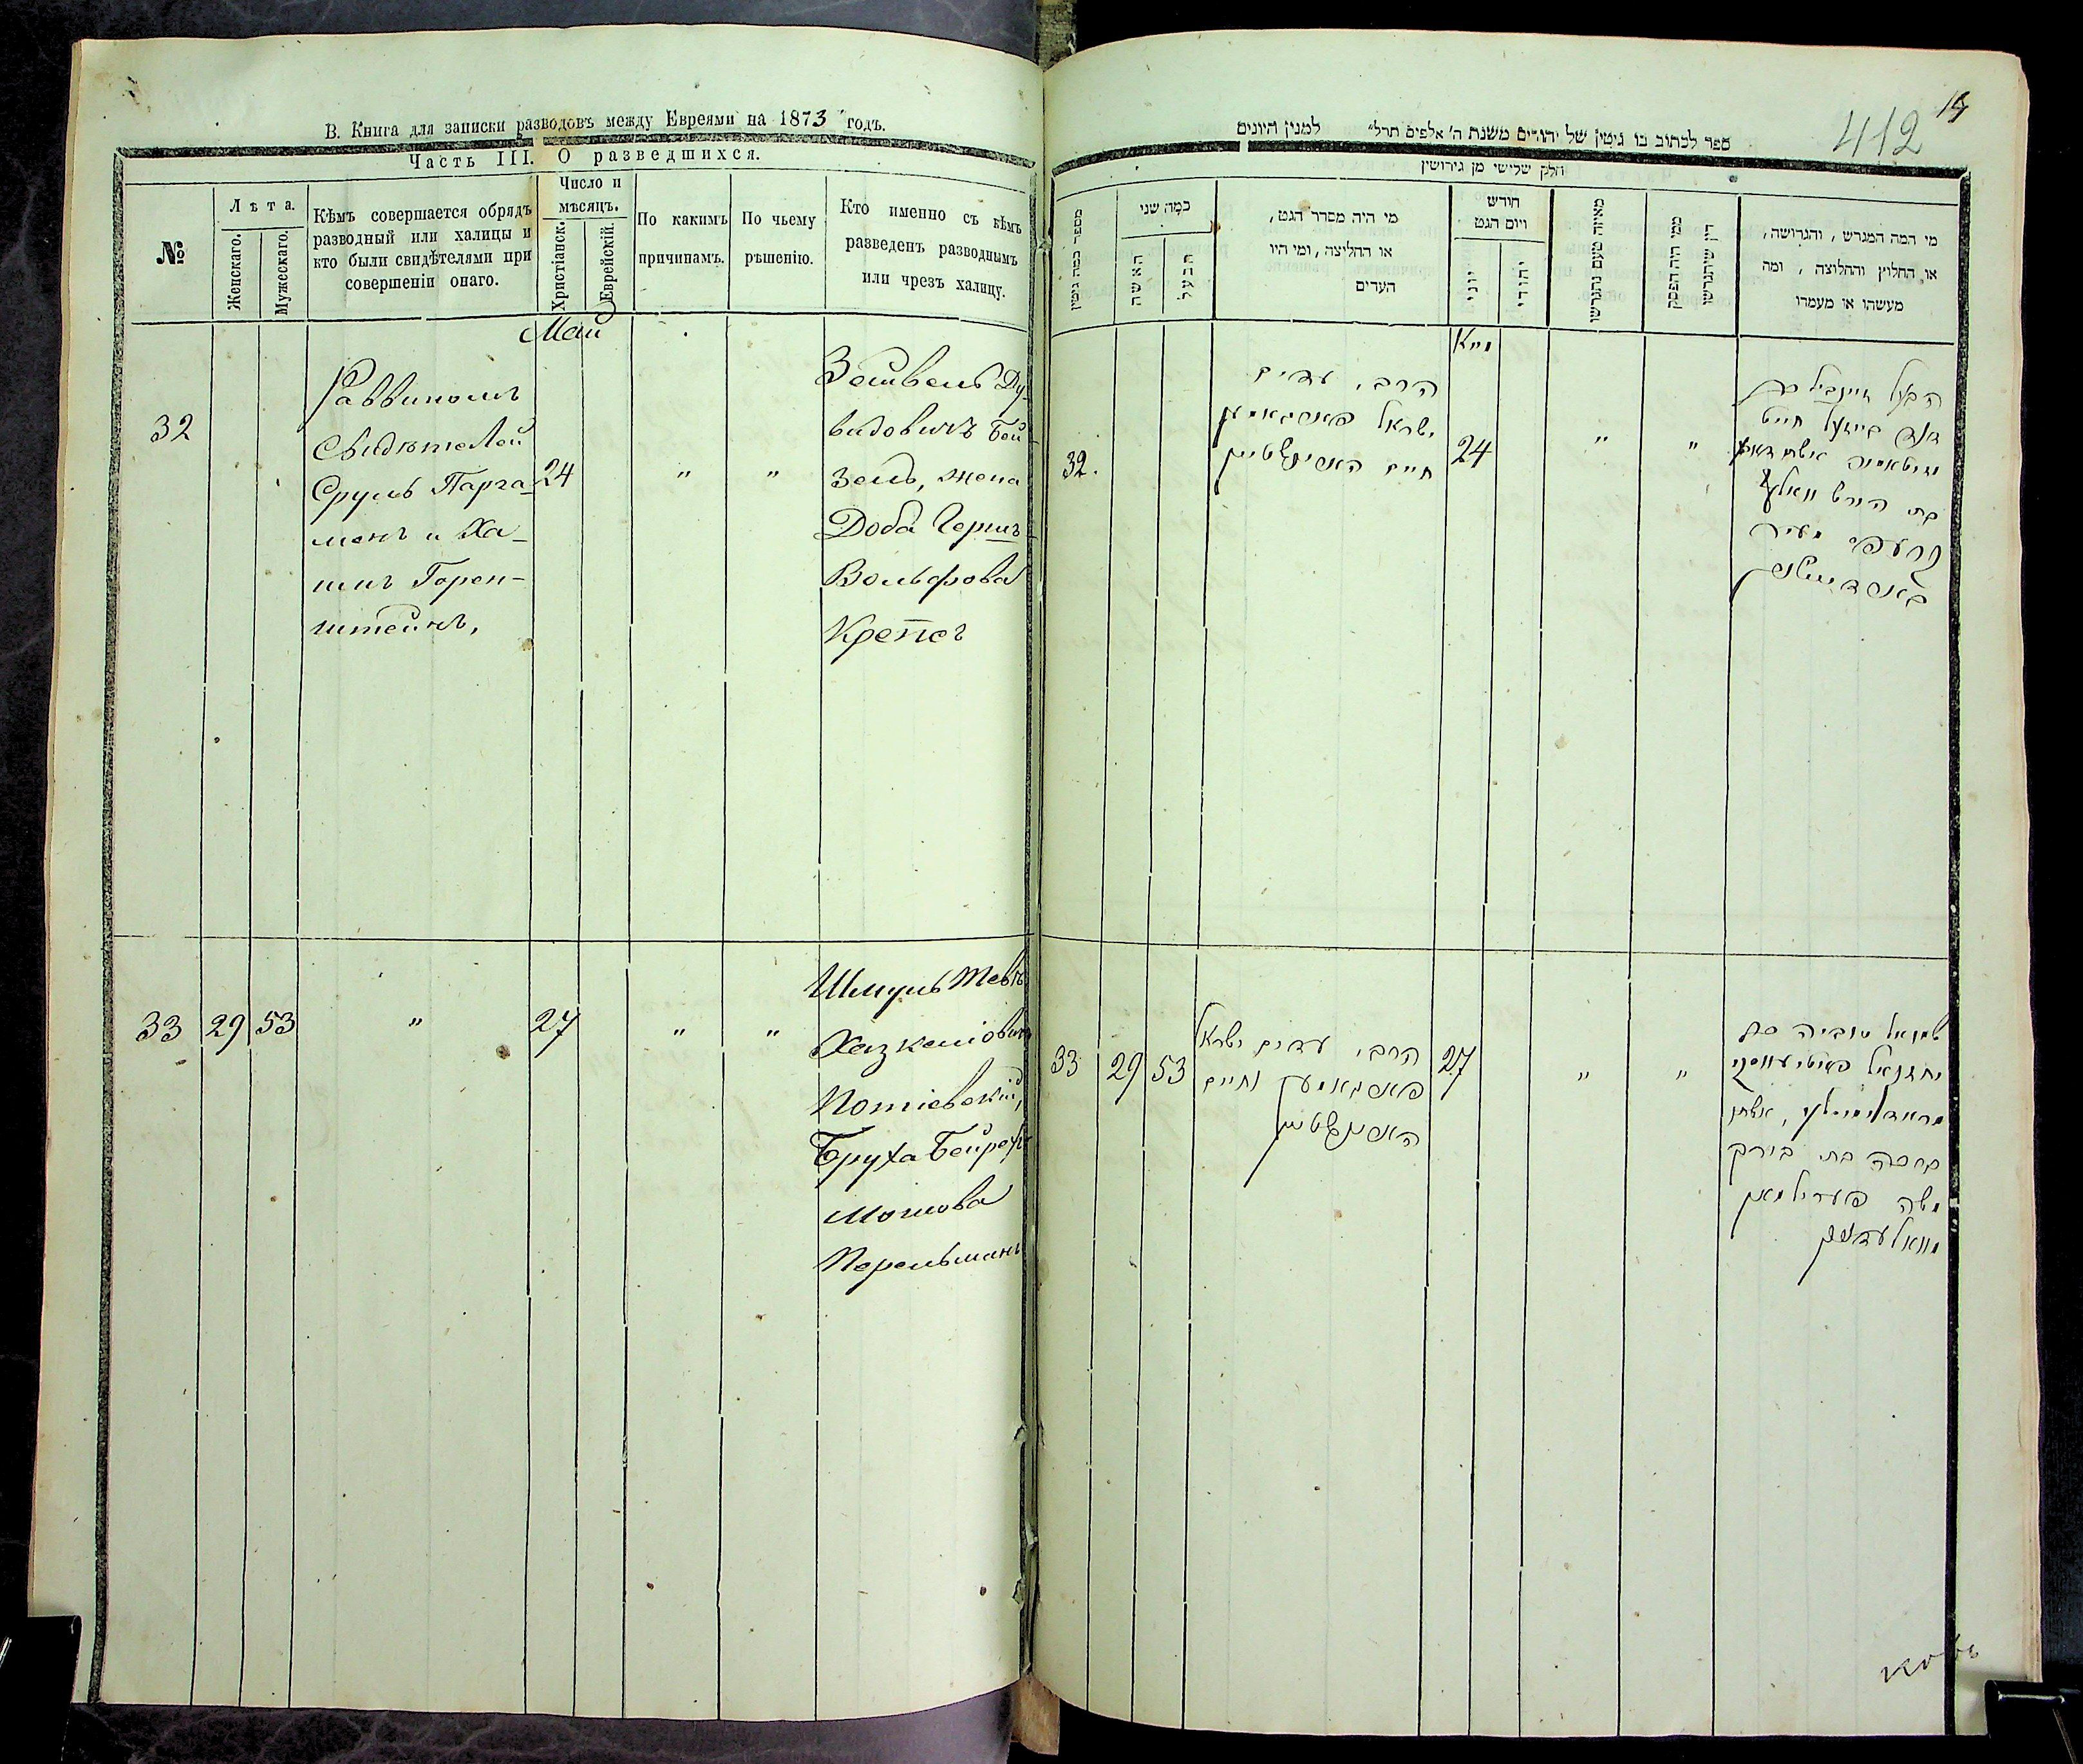 В. Книга для записки разводовъ между Евреями на 1873 годъ.
Часть III. О разведшихся.
№
Лѣта.
Женскаго.
Мужескаго.
Кѣмъ совершается обрядъ
разводный или халицы и
кто были свидѣтелями при
совершеніи онаго.
Число и
мѣсяцъ.
Христіанск.
Еврейскій.
По какимъ
причинамъ.
По чьему
рѣшенію.
Кто именно съ кѣмъ
разведенъ разводнымъ
или чрезъ халицу.
Май
32
Раввиномъ
Свидѣтелей
Сруль Парга-
менъ и Ха-
имъ Горен-
штейнъ,
24
"
"
Зейвель Ду-
видовичъ Бей-
зель, жена
Доба Герш-
Вольфова
Крепсъ
33
29
53
"
27
"
"
Шмуль Тевье
Хазкеліовичъ
Потіевскій,
Бруха Бейрехъ
Мошова
Перельманъ
412
ספר לכתוב בו גיטין של יהודים משנת ה' אלפים תרל" למנין היונים
חלק שלישי מן גירושין
מספר כמה גיטין
כמה שני
האשה
הבעל
מי היה מסדר הגט,
או החליצה, ומי היו
העדים
חודש
ויום הגט
יוני
יהודי
מאיזה טעם נתגרשו
ממי היה הפסק
דין שיתגרשו
מי המה המגרש, והגרושה,
או החלוץ והחלוצה, ומה
מעשהו או מעמדו
מיי
32.
הרבי עדים
ישראל פארגאמען
חיים הארינשטיין
24
"
"
33
29
53
הרבי עדים ישראל
פארגאמען וחיים
הארינשטיין
27
"
"
שמואל טוביה בן
יחזקאל פאטיעווסקי
ברכה בת בירך
משה פערילמאן